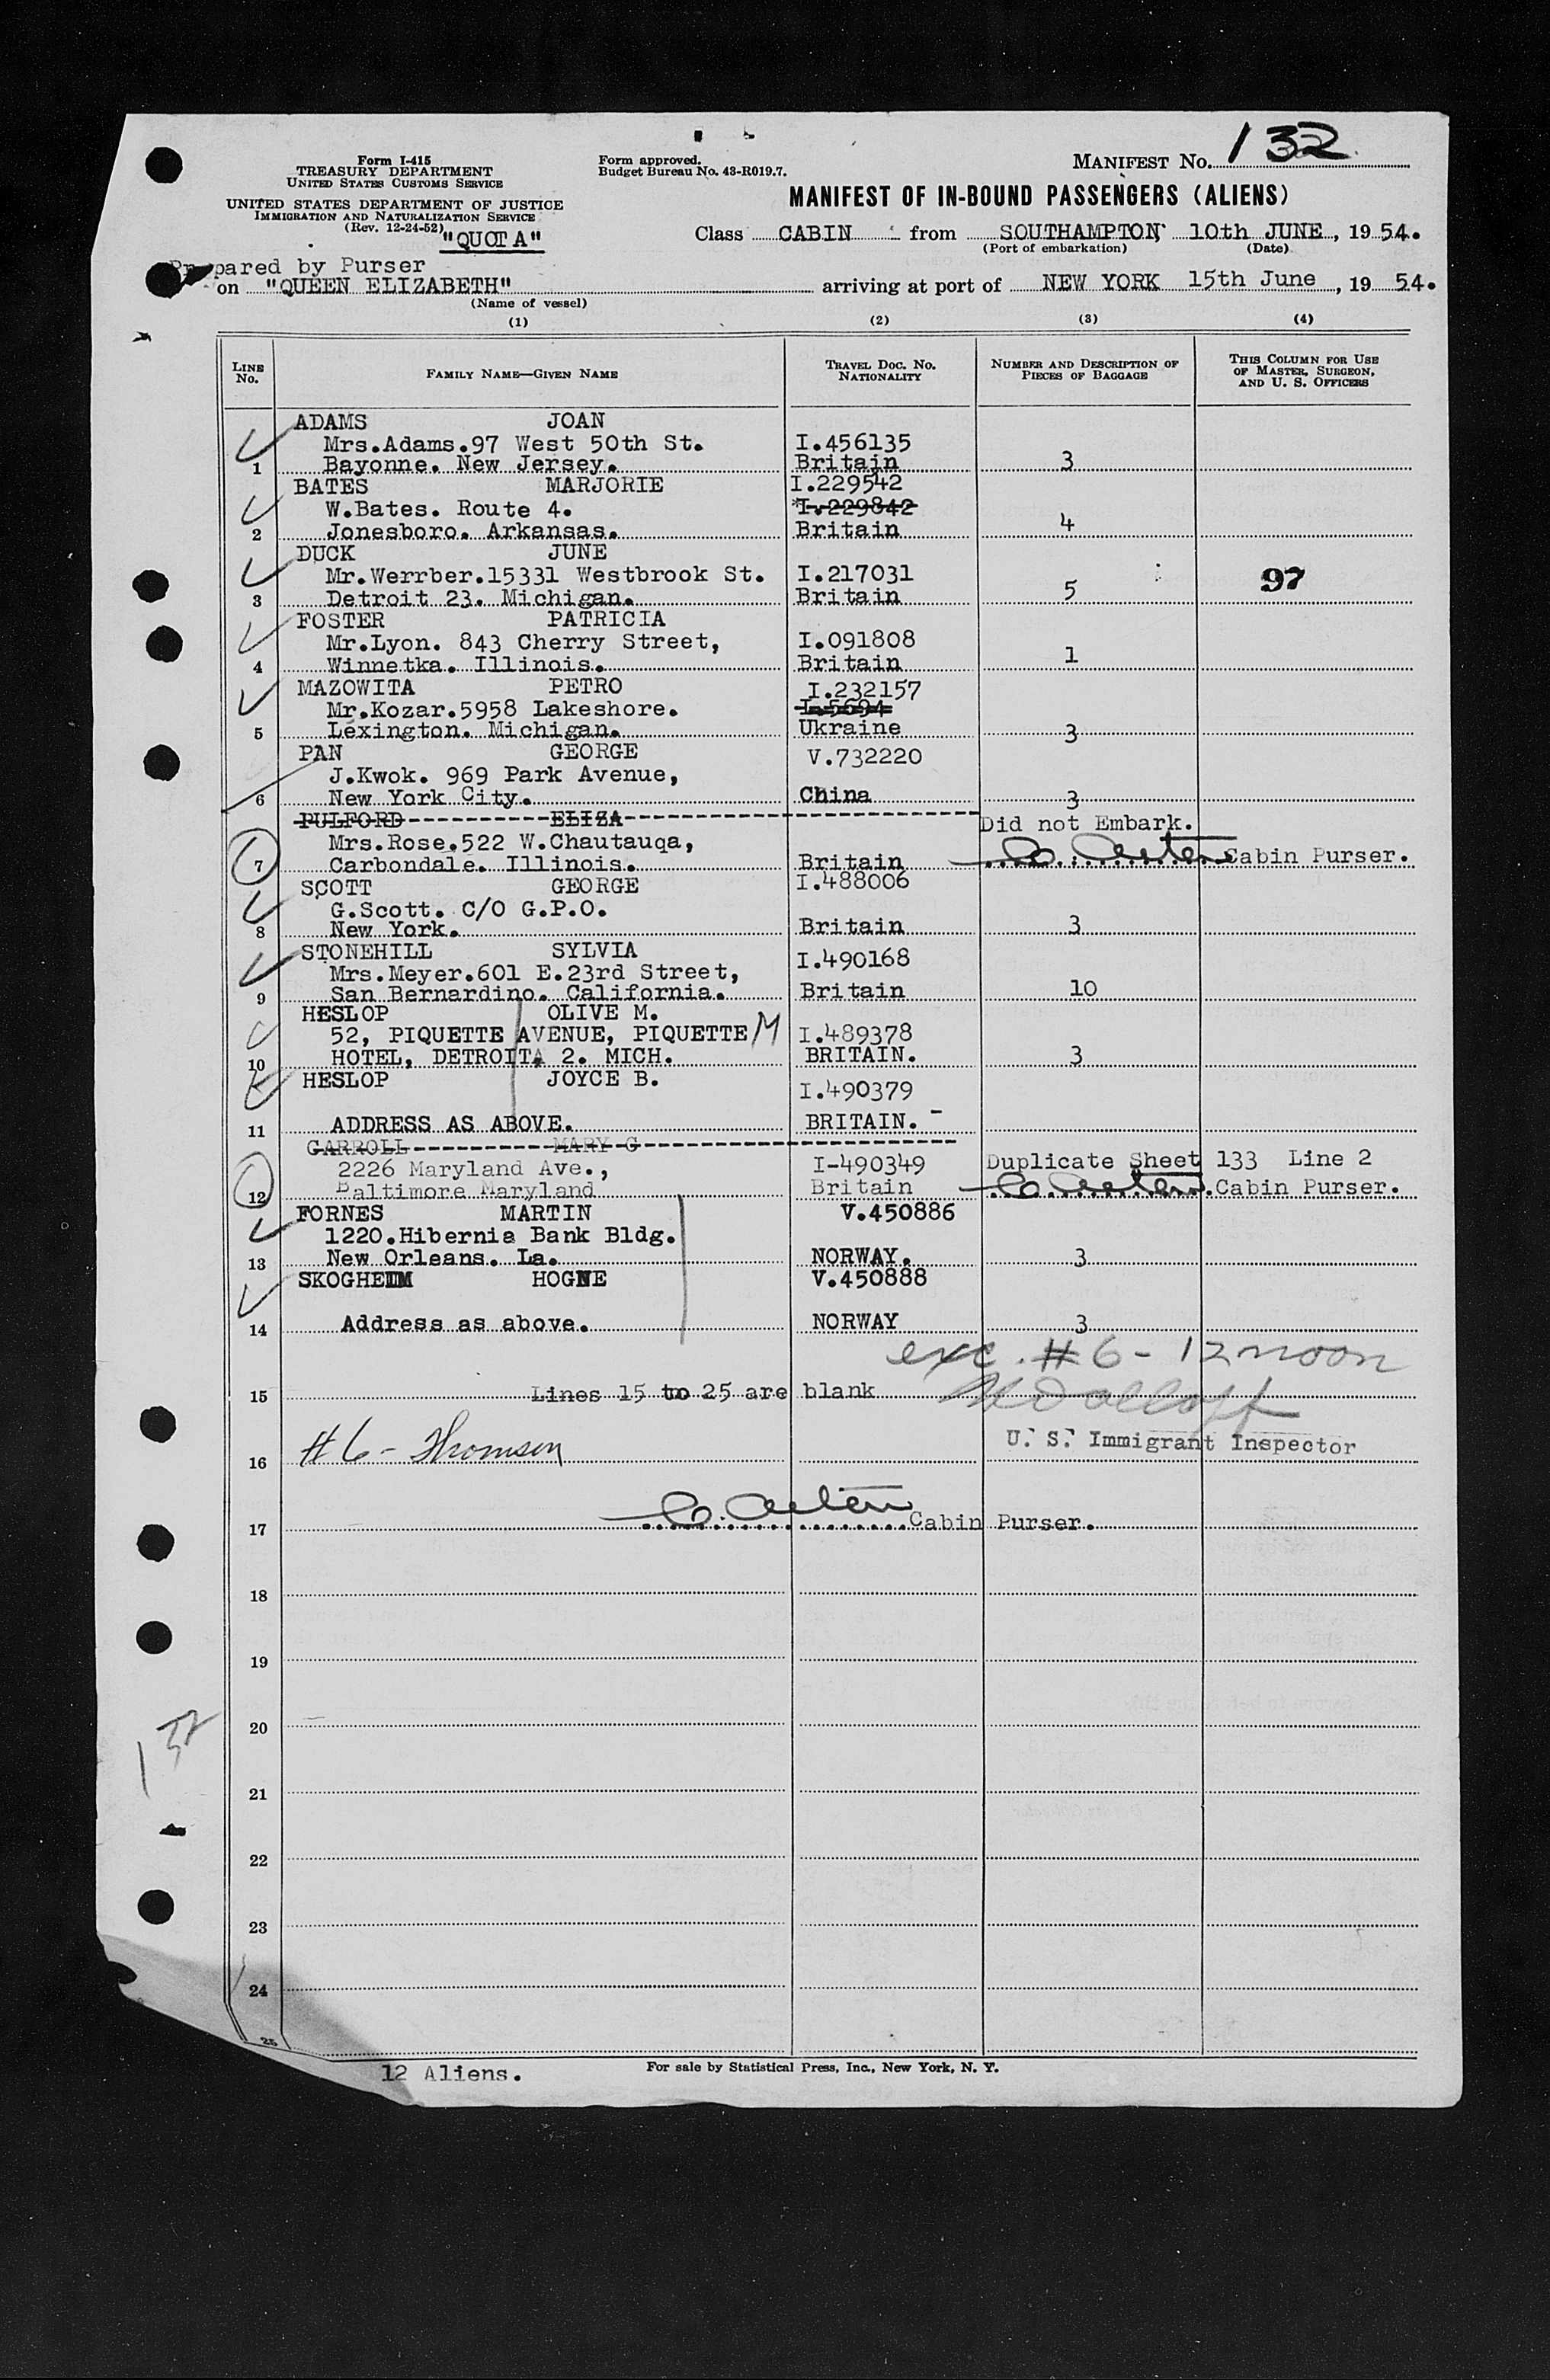 Form I-415
TREASURY DEPARTMENT
UNITED STATES CUSTOMS SERVICE
UNITED STATES DEPARTMENT OF JUSTICE
IMMIGRATION AND NATURALIZATION SERVICE
(Rev. 12-24-52)
"QUOTA"
Form approved.
Budget Bureau No. 43-R019.7.
MANIFEST No. 132
MANIFEST OF IN-BOUND PASSENGERS (ALIENS)
Class CABIN from SOUTHAMPTON 10th JUNE, 1954.
(Port of embarkation) (Date)
Prepared by Purser
on "QUEEN ELIZABETH" arriving at port of NEW YORK 15th June, 1954.
(Name of vessel)
(1) (2) (3) (4)
LINE No. FAMILY NAME—GIVEN NAME TRAVEL DOC. NO. NATIONALITY NUMBER AND DESCRIPTION OF PIECES OF BAGGAGE THIS COLUMN FOR USE OF MASTER, SURGEON, AND U. S. OFFICERS
ADAMS JOAN
Mrs.Adams.97 West 50th St. I.456135
1 Bayonne. New Jersey. Britain 3
BATES MARJORIE I.229542
W.Bates. Route 4. I.229842
2 Jonesboro. Arkansas. Britain 4
DUCK JUNE
Mr.Werrber.15331 Westbrook St. I.217031 97
3 Detroit 23. Michigan. Britain 5
FOSTER PATRICIA
Mr.Lyon. 843 Cherry Street, I.091808
4 Winnetka. Illinois. Britain 1
MAZOWITA PETRO I.232157
Mr.Kozar.5958 Lakeshore. I.5694
5 Lexington. Michigan. Ukraine 3
PAN GEORGE V.732220
J.Kwok. 969 Park Avenue,
6 New York City. China 3
PULFORD ELIZA Did not Embark.
Mrs.Rose.522 W.Chautauqa,
7 Carbondale. Illinois. Britain Cabin Purser.
SCOTT GEORGE I.488006
G.Scott. C/O G.P.O.
8 New York. Britain 3
STONEHILL SYLVIA I.490168
Mrs.Meyer.601 E.23rd Street,
9 San Bernardino. California. Britain 10
HESLOP OLIVE M.
52, PIQUETTE AVENUE, PIQUETTE M I.489378
10 HOTEL, DETROIT 2. MICH. BRITAIN. 3
HESLOP JOYCE B. I.490379
11 ADDRESS AS ABOVE. BRITAIN. -
CARROLL MARY G
2226 Maryland Ave., I-490349 Duplicate Sheet 133 Line 2
12 Baltimore Maryland Britain Cabin Purser.
FORNES MARTIN V.450886
1220.Hibernia Bank Bldg.
13 New Orleans. La. NORWAY. 3
SKOGHEIM HOGNE V.450888
14 Address as above. NORWAY 3
exc. #6 - 12 noon
15 Lines 15 to 25 are blank
U. S. Immigrant Inspector
16 #6 - Thomsen
17 Cabin Purser.
18
19
20
132
21
22
23
24
25
12 Aliens.
For sale by Statistical Press, Inc., New York, N. Y.